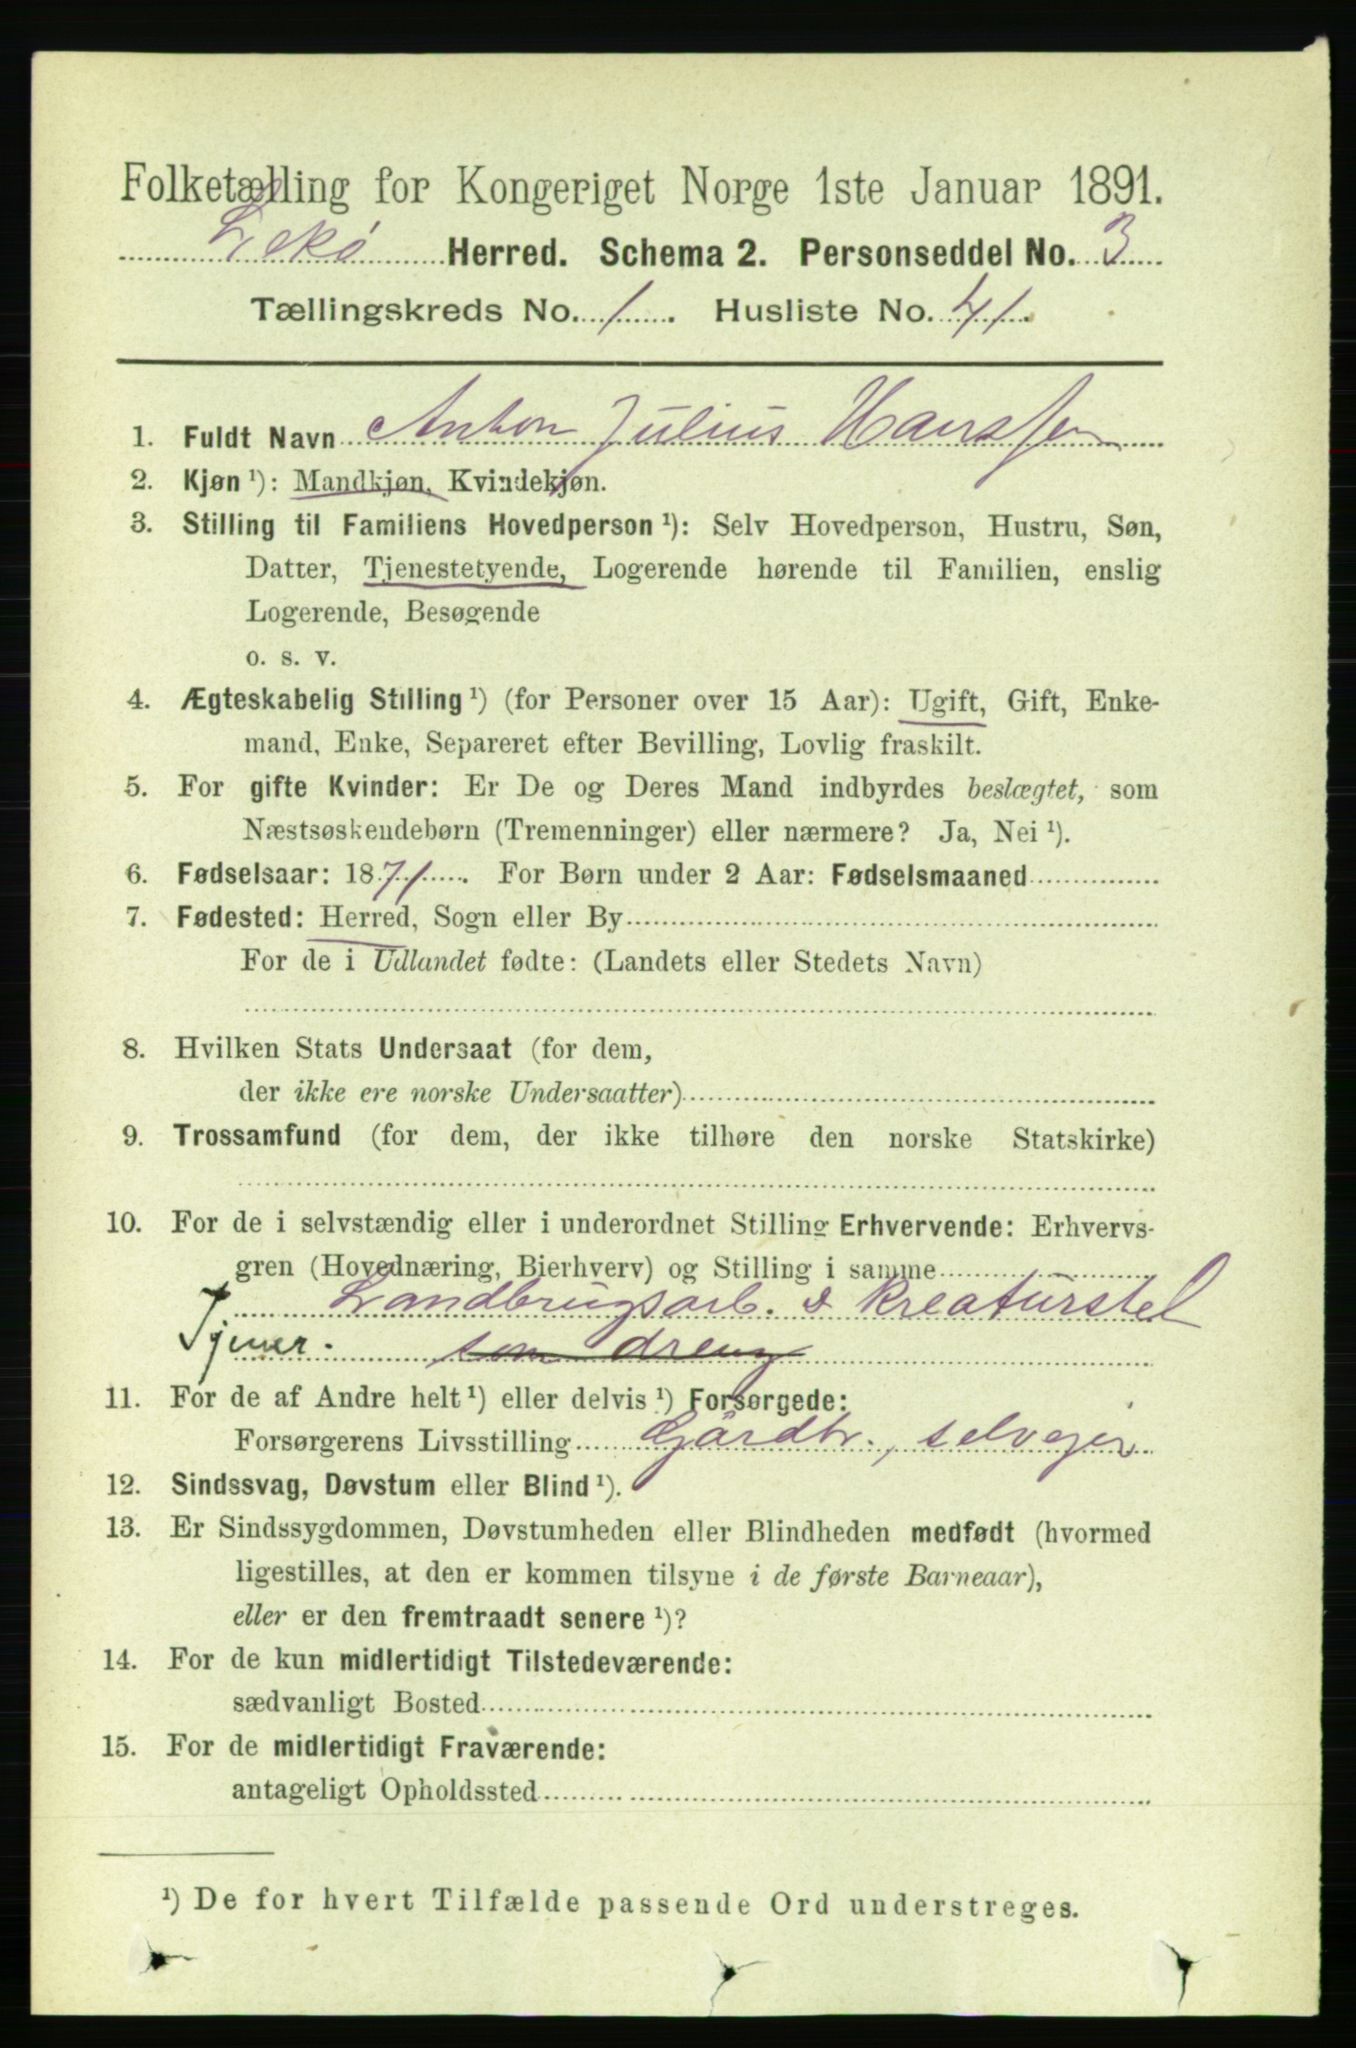 Folketælling for Kongeriget Norge 1ste Januar 1891.
Lekø Herred. Schema 2. Personseddel No. 3
Tællingskreds No. 1. Husliste No. 41.
1. Fuldt Navn Anton Julius Hanssen
2. Kjøn ¹): Mandkjøn, Kvindekjøn.
3. Stilling til Familiens Hovedperson ¹): Selv Hovedperson, Hustru, Søn,
Datter, Tjenestetyende, Logerende hørende til Familien, enslig
Logerende, Besøgende
o. s. v.
4. Ægteskabelig Stilling ¹) (for Personer over 15 Aar): Ugift, Gift, Enke-
mand, Enke, Separeret efter Bevilling, Lovlig fraskilt.
5. For gifte Kvinder: Er De og Deres Mand indbyrdes beslægtet, som
Næstsøskendebørn (Tremenninger) eller nærmere? Ja, Nei ¹).
6. Fødselsaar: 1871. For Børn under 2 Aar: Fødselsmaaned
7. Fødested: Herred, Sogn eller By
For de i Udlandet fødte: (Landets eller Stedets Navn)
8. Hvilken Stats Undersaat (for dem,
der ikke ere norske Undersaatter)
9. Trossamfund (for dem, der ikke tilhøre den norske Statskirke)
10. For de i selvstændig eller i underordnet Stilling Erhvervende: Erhvervs-
gren (Hovednæring, Bierhverv) og Stilling i samme
Landbrugsarb. & Kreaturstel
Tjener. som dreng
11. For de af Andre helt ¹) eller delvis ¹) Forsørgede:
Forsørgerens Livsstilling Gårdbr., selveier
12. Sindssvag, Døvstum eller Blind ¹).
13. Er Sindssygdommen, Døvstumheden eller Blindheden medfødt (hvormed
ligestilles, at den er kommen tilsyne i de første Barneaar),
eller er den fremtraadt senere ¹)?
14. For de kun midlertidigt Tilstedeværende:
sædvanligt Bosted
15. For de midlertidigt Fraværende:
antageligt Opholdssted
¹) De for hvert Tilfælde passende Ord understreges.